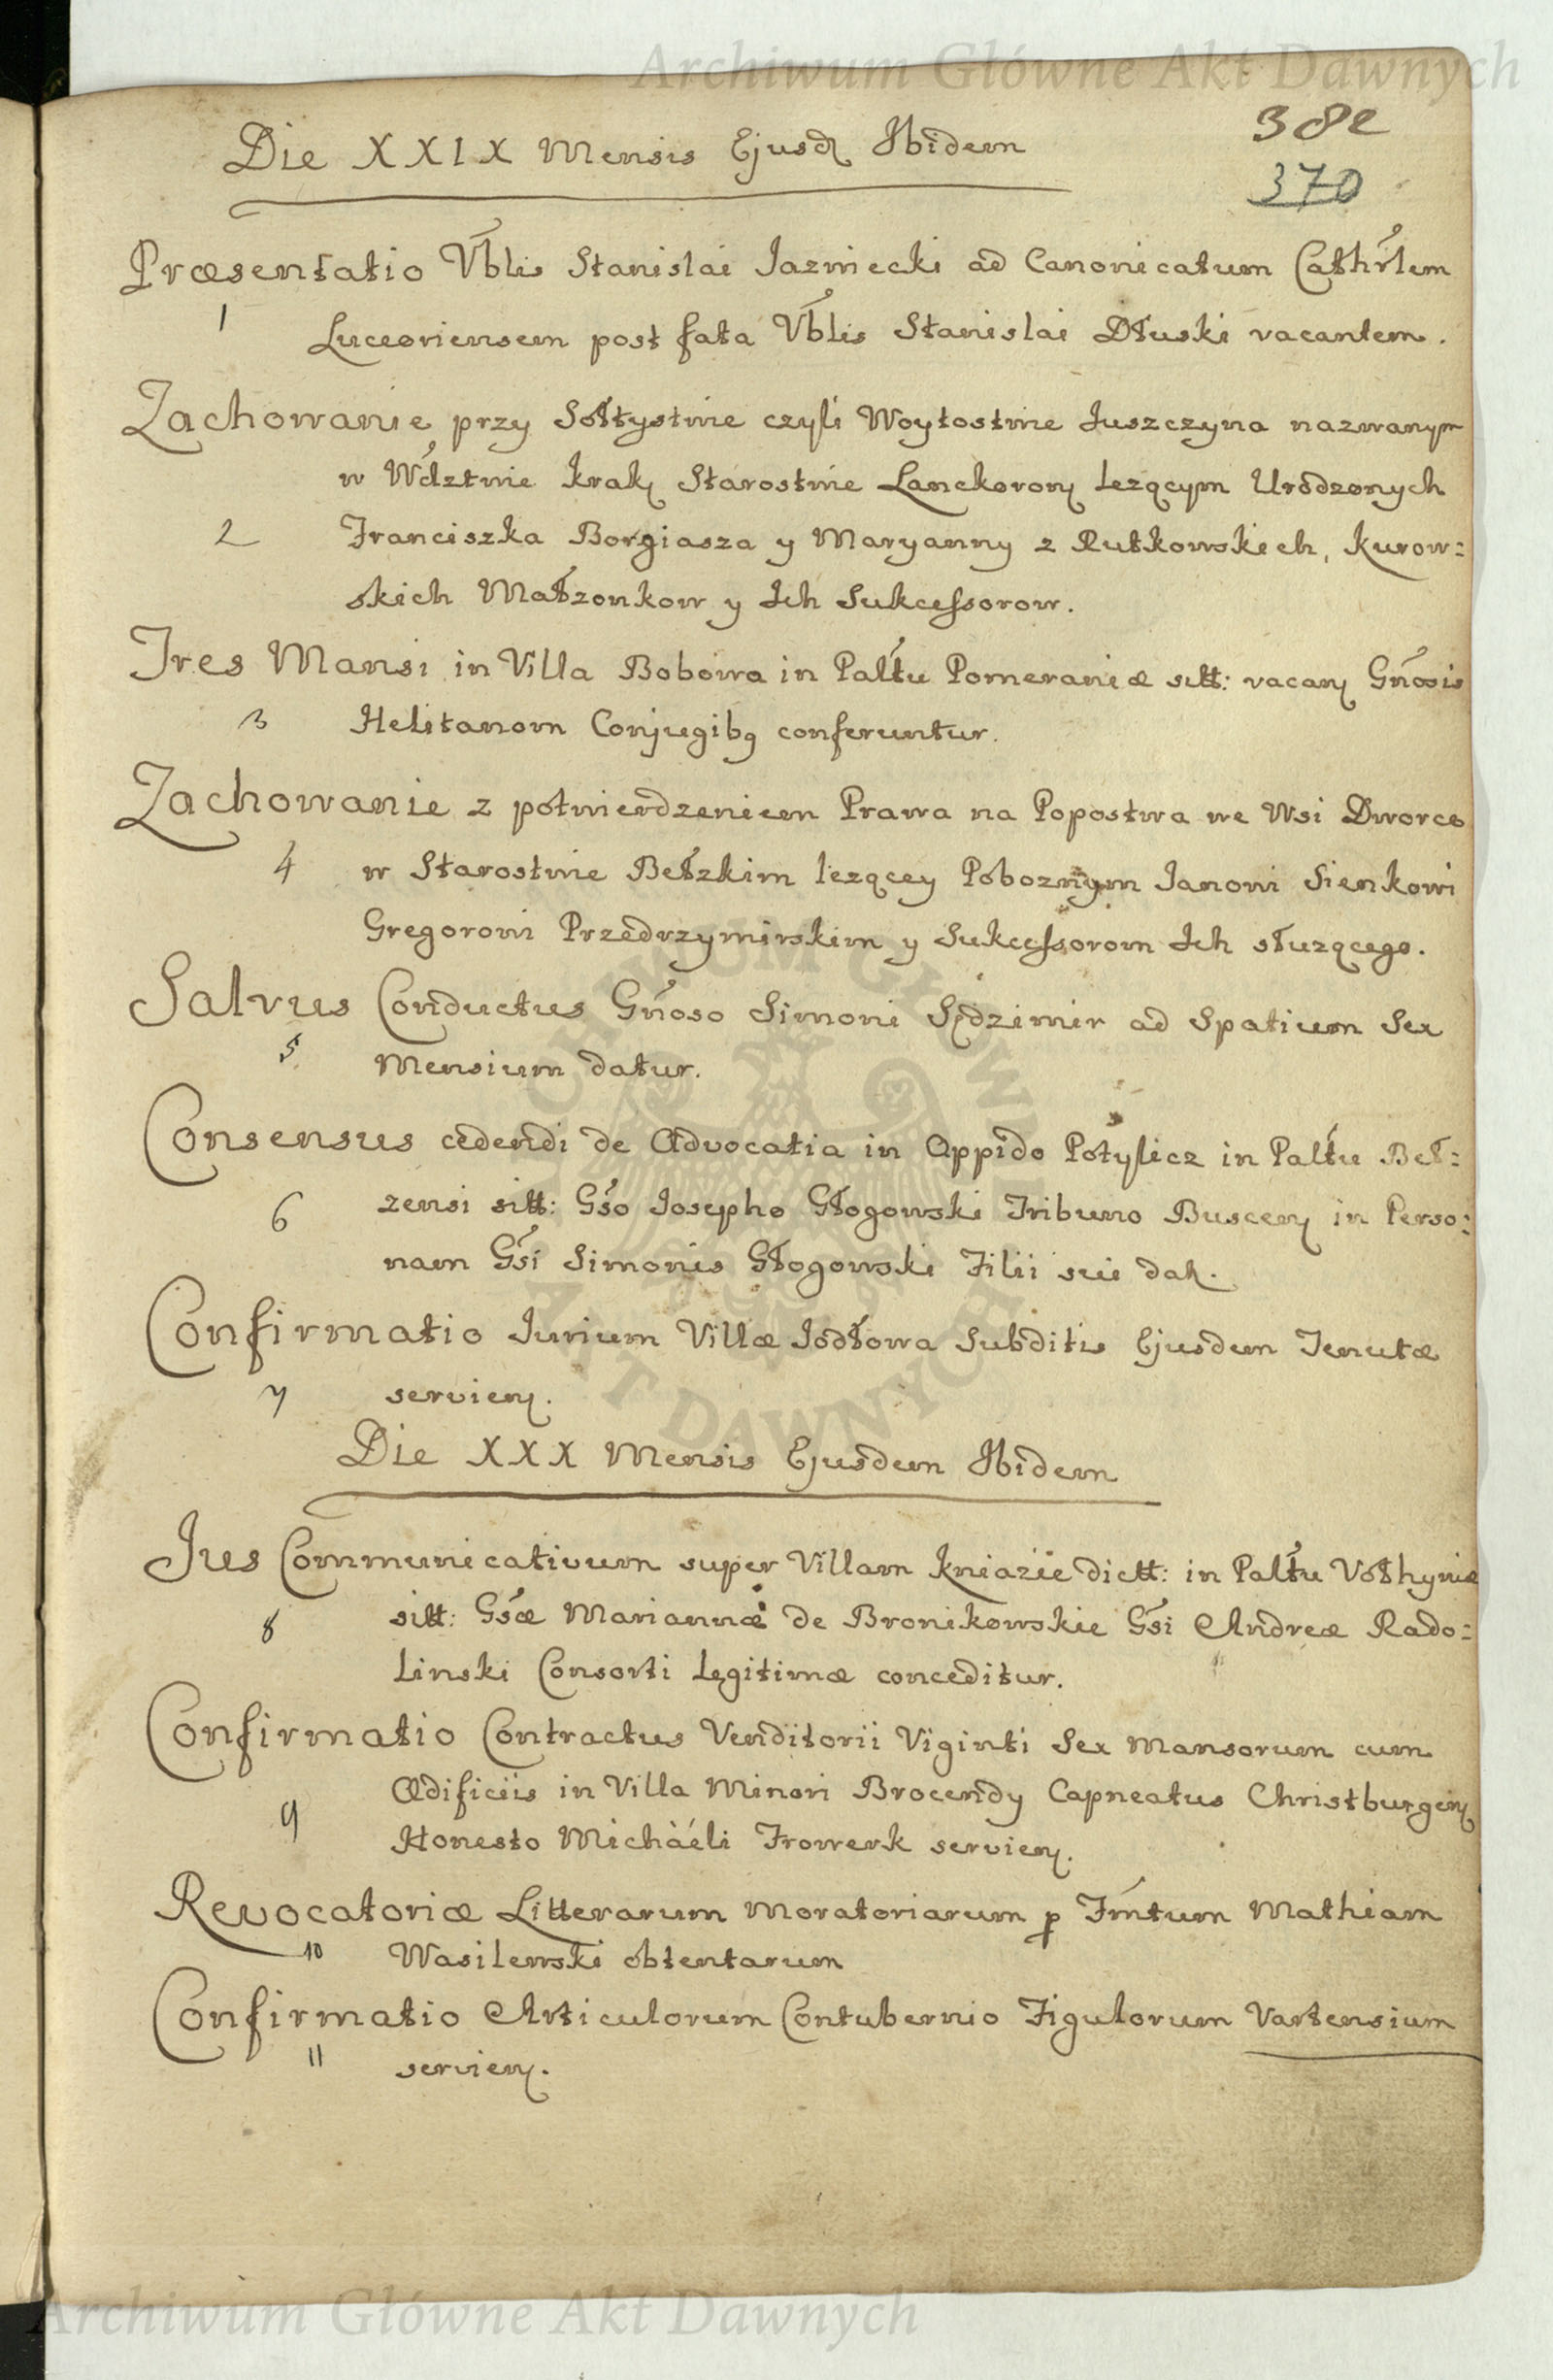 Archiwum Główne Akt Dawnych
382
Die XXIX Mensis Ejusd Ibidem
370
Præsentatio Vblis Stanislai Jazwiecki ad Canonicatum Cathrlem
1
Luceoriensem post fata Vblis Stanislai Dłuski vacantem.
Zachowanie przy Sołtystwie czyli Woytostwie Juszczyna nazwanym
w Wdztwie Krak Starostwie Lanckoron lezącym Urodzonych
2 Franciszka Borgiasza y Maryanny z Rutkowskich, Kurow:
skich Małzonkow y Ich Sukcessorow.
Tres Mansi in Villa Bobowa in Paltu Pomeraniæ sitt: vacan Gnosis
3 Helitanom Conjugibq conferuntur.
Zachowanie z potwierdzeniem Prawa na Popostwa we Wsi Dworce
4 w Starostwie Bełzkim lezącey Poboznym Janowi Sienkowi
Gregorowi Przedrzymirskim y Sukcessorom Ich słuzącego.
Salvus Conductus Gnoso Simoni Sędzimir ad Spatium Sex
5 Mensium datur.
Consensus cedendi de Advocatia in Oppido Potylicz in Paltu Beł:
6 zensi sitt: Gso Josepho Głogowski Tribuno Buscen in Perso:
nam Gsi Simonis Głogowski Filii sui dat.
Confirmatio Jurium Villæ Jodłowa Subditis Ejusdem Tenutæ
7 servien.
Die XXX Mensis Ejusdem Ibidem
Jus Communicativum super Villam Kniazie dictt: in Paltu Vołhyniæ
8 sitt: Gsæ Mariannæ de Bronikowskie Gsi Andreæ Rado:
linski Consorti legitimæ conceditur.
Confirmatio Contractus Venditorii Viginti Sex Mansorum cum
Ædificiis in Villa Minori Brocendy Capneatus Christburgen
9 Honesto Michàéli Frowerk servien.
Revocatoriæ Litterarum Moratoriarum p Fmtum Mathiam
10 Wasilewski obtentarum
Confirmatio Articulorum Contubernio Figulorum Vartensium
11 servien.
ARCHIWUM GŁÓWNE AKT DAWNYCH
Archiwum Główne Akt Dawnych